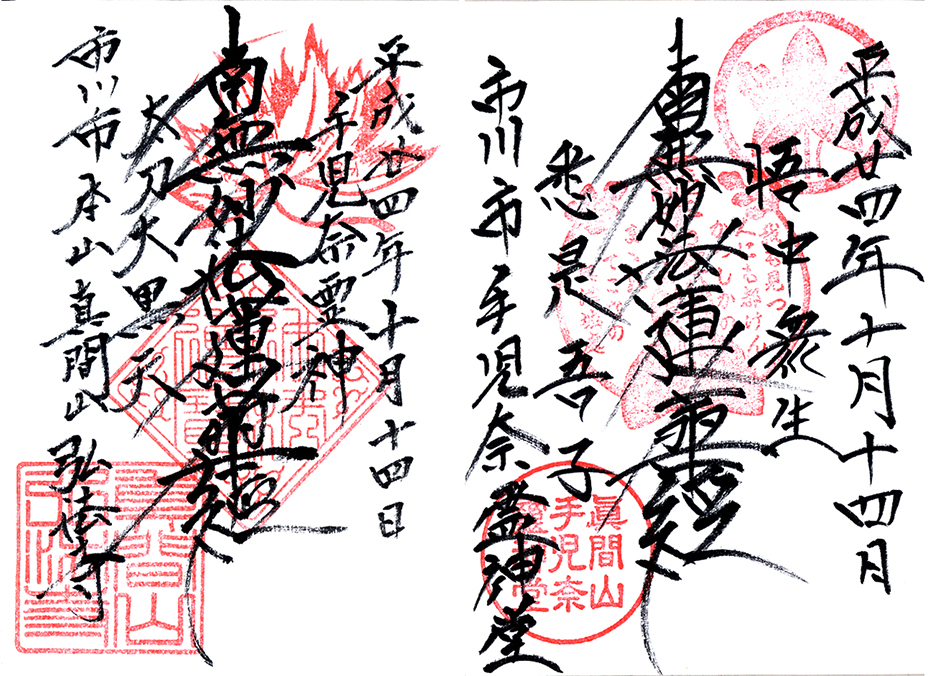 平成廿四年十月十四月
悟中衆生
南無妙法蓮華経
悉是吾子
市川市手児奈霊神堂
眞間山
手児奈
霊神堂
平成廿四年十月十四日
手児奈霊神
南無妙法蓮華経
太刀大黒天
市川市本山真間山弘法寺